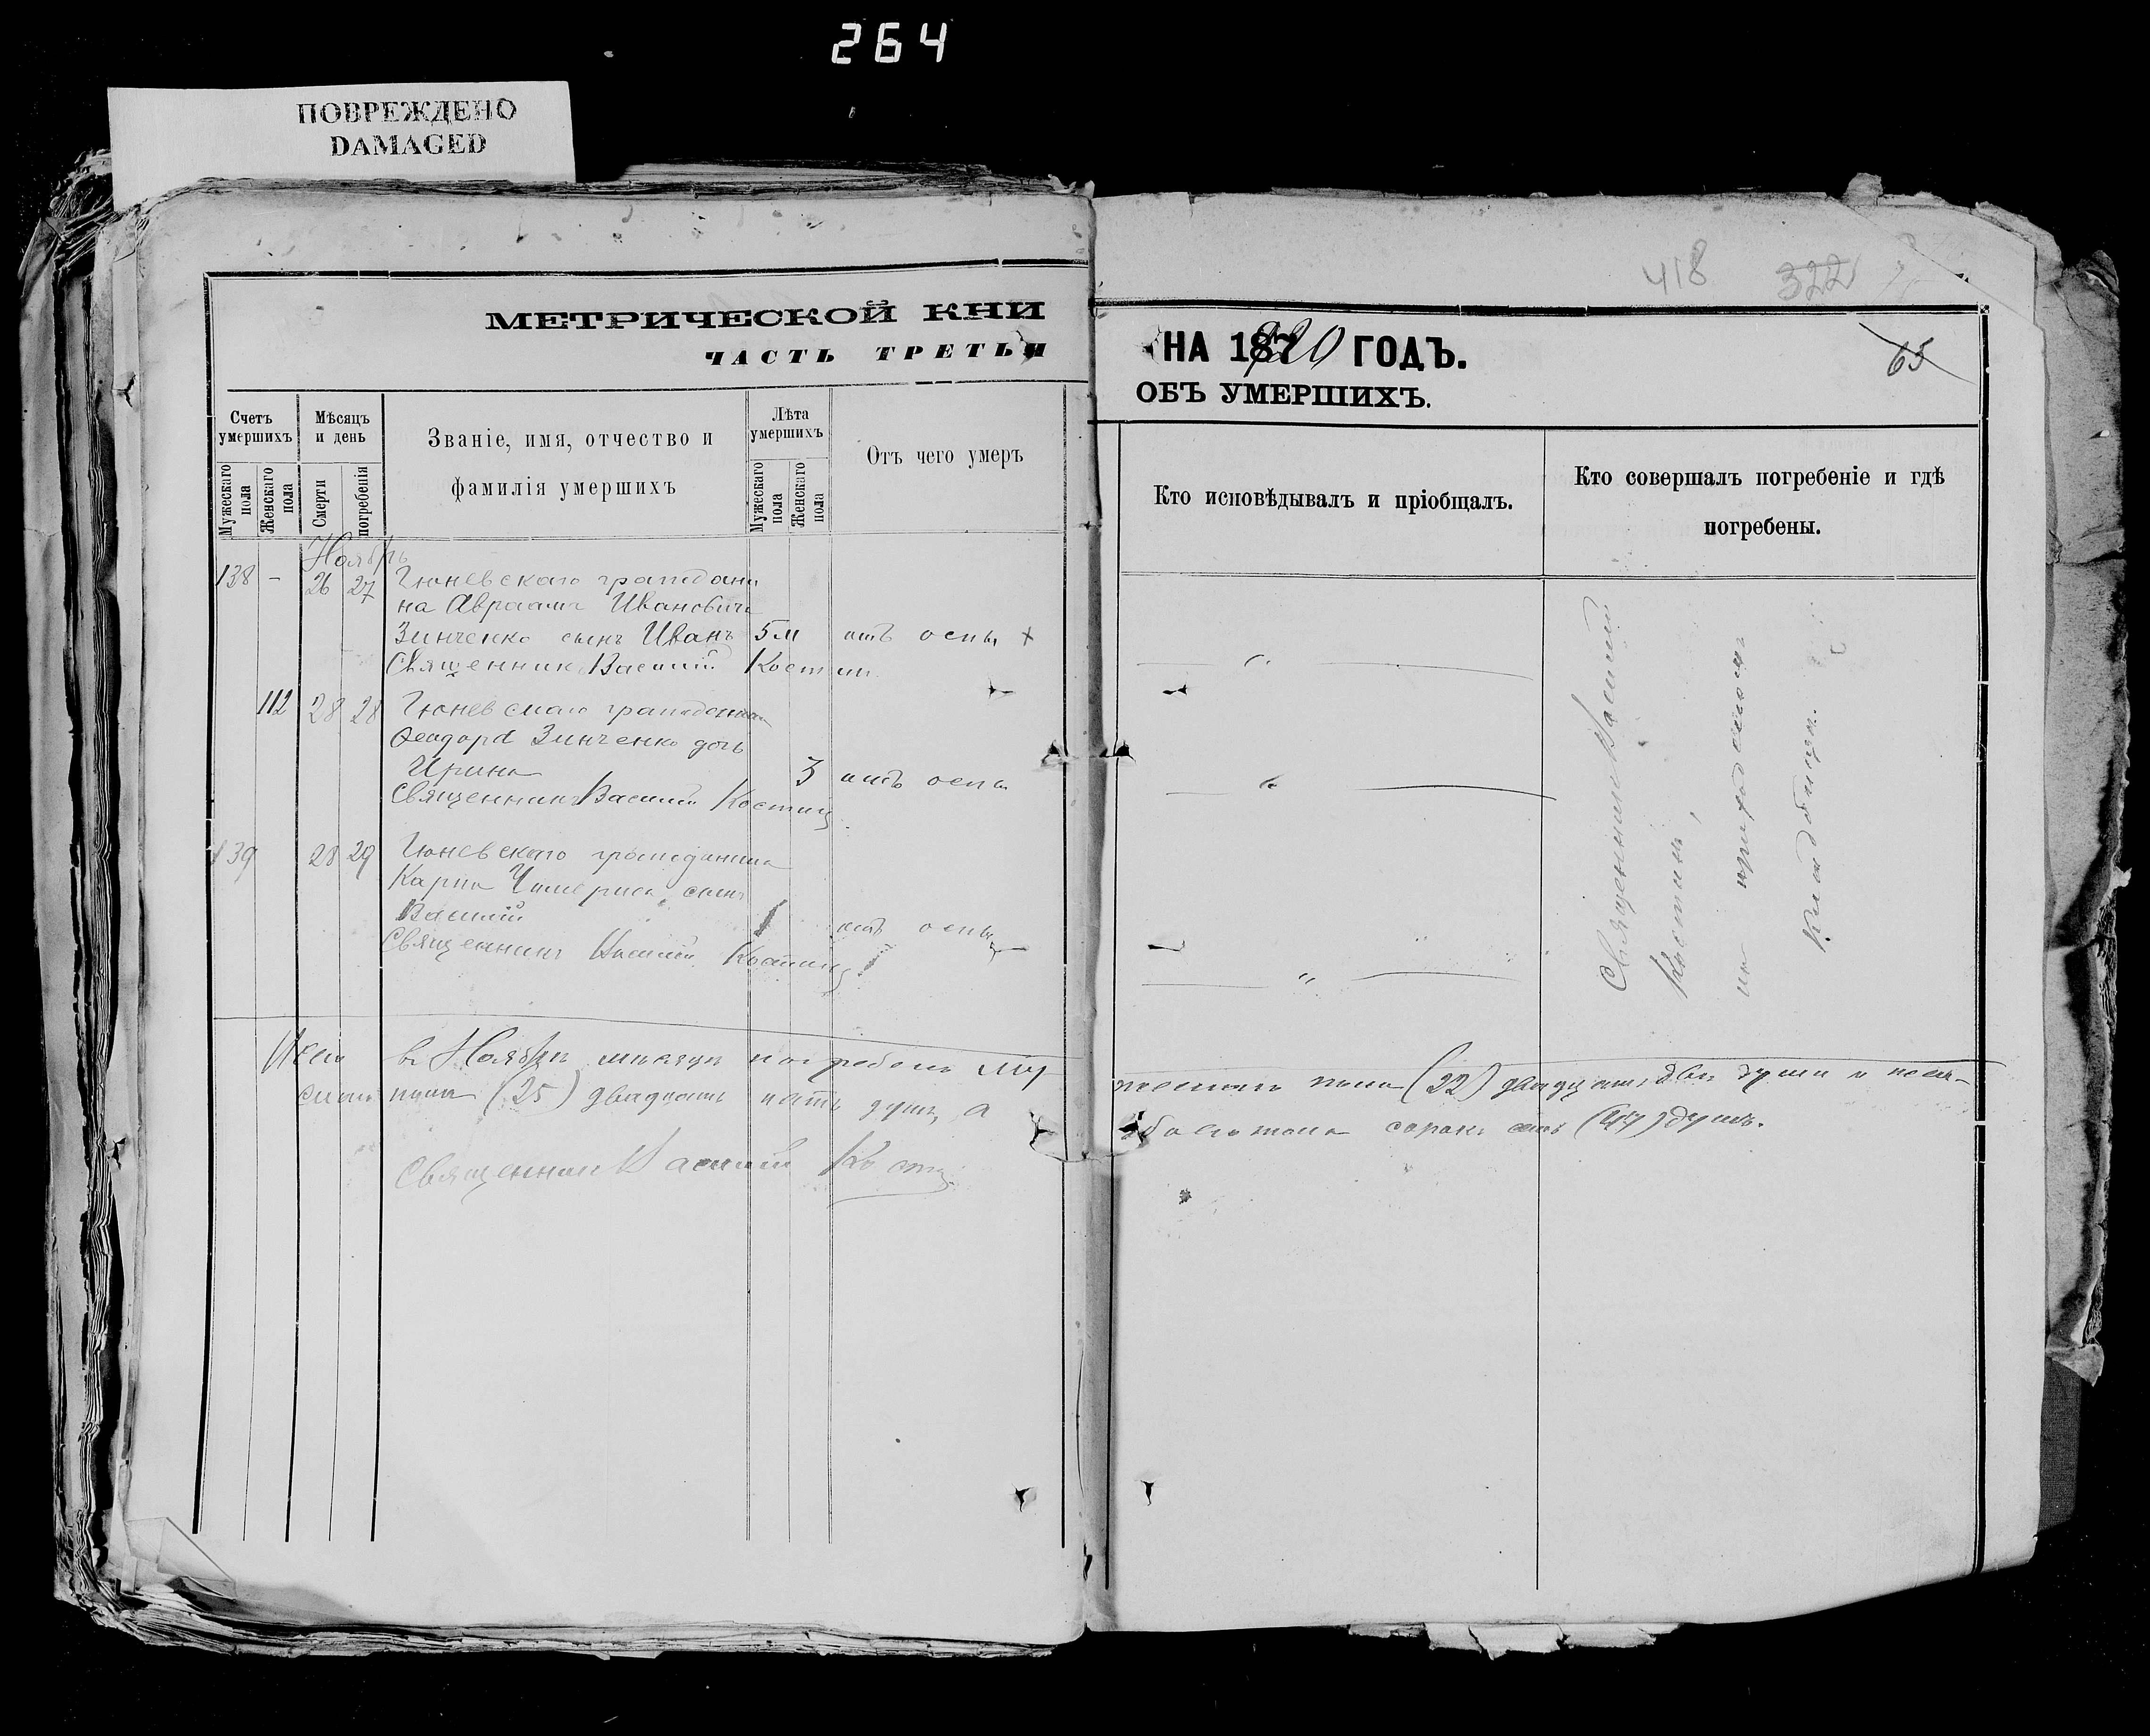 264
ПОВРЕЖДЕНО
DAMAGED
418 322
МЕТРИЧЕСКОЙ КНИ
ЧАСТЬ ТРЕТЬЯ
НА 1920 ГОДЪ.
65
ОБЪ УМЕРШИХЪ.
Счетъ умершихъ
Мужескаго пола
Женскаго пола
Мѣсяцъ и день
Смерти
погребенія
Званіе, имя, отчество и
фамилія умершихъ
Лѣта умершихъ
Мужескаго пола
Женскаго пола
Отъ чего умеръ
Кто исповѣдывалъ и пріобщалъ.
Кто совершалъ погребеніе и гдѣ
погребены.
Ноябрь
138 - 26 27 Гюневскаго граждани
на Авраама Ивановича
Зинченко сынъ Иванъ 5 м отъ оспы +
Священникъ Василій Костин
112 28 28 Гюневскаго гражданина
Феодора Зинченко дочь
Ирина 3 отъ оспы
Священникъ Василий Костин
139 28 29 Гюневскаго гражданина
Карпа сынъ
Василій 1 отъ оспы
Священникъ Василій Костин
Священникъ Василий
Костинъ,
на приходскомъ
кладбищѣ.
въ Ноябрѣ месяцѣ погребено му
пола (25) двадцать пять душъ, а
женскаго пола (22) двадцать двѣ души а
обоего пола сорокъ семь (47) душъ.
Священник Василий Костин